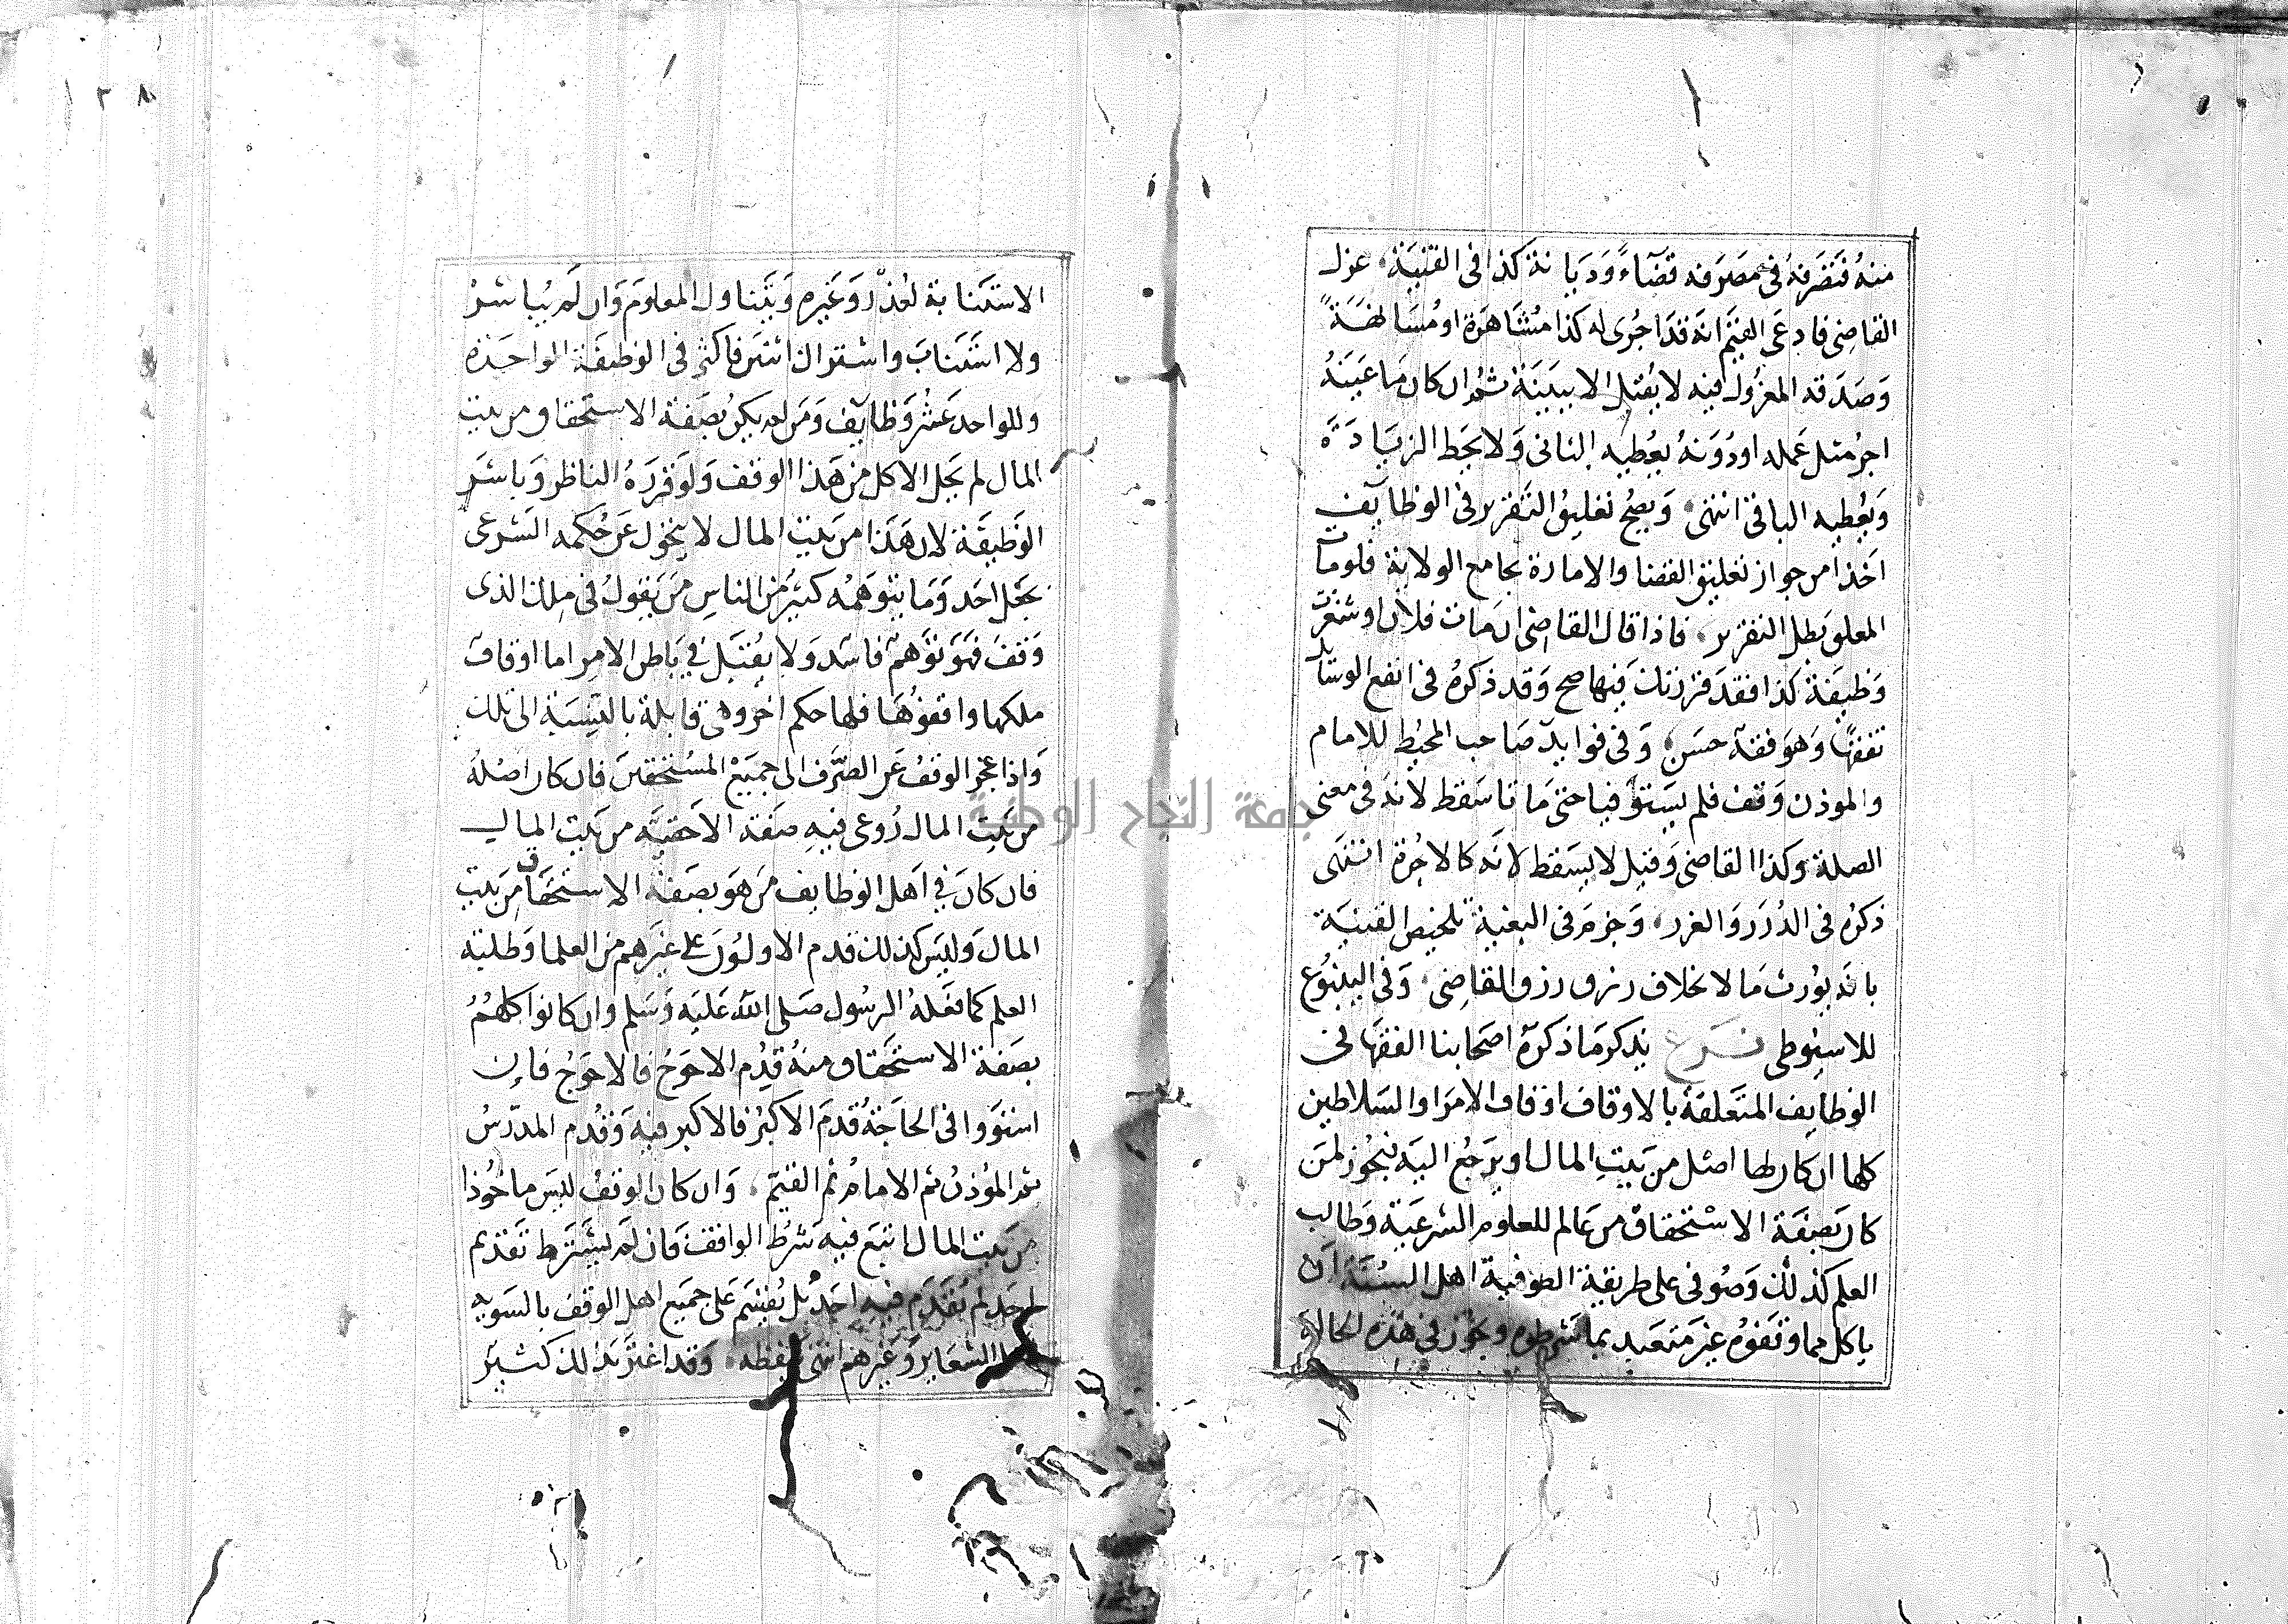 منه فتصرفه في مصرفه قضاء وديانة كذا في القنية عزل
القاضي فادعى القيم انه قد اجرى له كذا مشاهرة او مسانهة
وصدقه المعزول فيه لا يقبل الا ببينة ثم ان كان ما عينه
اجر مثل عمله او دونه يعطيه الثاني ولا يحط الزيادة
ويعطيه الباقي انتهى ويصح تعليق التقرير في الوظايف
اخذا من جواز تعليق القضا والامارة بجامع الولاية فلو مات
المعلق بطل التقرير فاذا قال القاضي ان مات فلان او شغرت
وظيفة كذا فقد قررتك فيها صح وقد ذكره في انفع الوسايل
تفقها وهو فقه حسن وفي فوايد صاحب المحيط للامام
والموذن وقف فلم يستوفيا حتى ماتا سقط لانه في معنى
الصلة وكذا القاضي وقيل لا يسقط لانه كالاجرة انتهى
ذكره في الدرر والغرر وجزم في البغية تلخيص القنية
بانه يورث مالا بخلاف رزق القاضي وفي الينبوع
للاسيوطي فرع يذكر ما ذكره اصحابنا الفقها في
الوظايف المتعلقة بالاوقاف اوقاف الامرا والسلاطين
كلها ان كان لها اصل من بيت المال او يرجع اليه فيجوز لمن
كان بصفة الاستحقاق من عالم للعلوم الشرعية وطالب
العلم كذلك وصوفي على طريقة الصوفية اهل السنة ان
ياكل مما وقفوه غير متعبد بما شرطوه وجوز في هذه الحالة
١٢٨
الاستنابة لعذر وغيره ويتناول المعلوم وان لم يباشر
ولا استناب واشتراك اثنين فاكثر في الوظيفة الواحدة
وللواحد عشر وظايف ومن لم يكن بصفة الاستحقاق من بيت
المال لم يحل الاكل من هذا الوقف ولو قرره الناظر وباشر
الوظيفة لان هذا من بيت المال لا يتحول عن حكمه الشرعي
بجعل احد وما يتوهمه كثير من الناس من يقول في ملك الذي
وقف فهو توهم فاسد ولا يقبل في باطن الامر اما اوقاف
ملكها واقفوها فلها حكم اخر وهي قابلة بالنسبة الى تلك
واذا عجز الوقف عن الصرف الى جميع المستحقين فان كان اصله
من بيت المال روعي فيه صفة الاحقية من بيت المال
فان كان في اهل الوظايف من هو بصفة الاستحقاق من بيت
المال وليس كذلك قدم الاولون على غيرهم من العلما وطلبة
العلم كما فعله الرسول صلى الله عليه وسلم وان كانوا كلهم
بصفة الاستحقاق منه قدم الاحوج فالاحوج فان
استووا في الحاجة قدم الاكبر فالاكبر فيه وقدم المدرس
ثم الموذن ثم الامام ثم القيم وان كان الوقف ليس ماخوذا
من بيت المال اتبع فيه شرط الواقف فان لم يشترط تقديم
احد لم يقدم فيه احد بل يقسم على جميع اهل الوقف بالسوية
الشعاير وغيرهم انتهى بلفظه وقد اغتر بذلك كثير
جامعة النجاح الوطنية